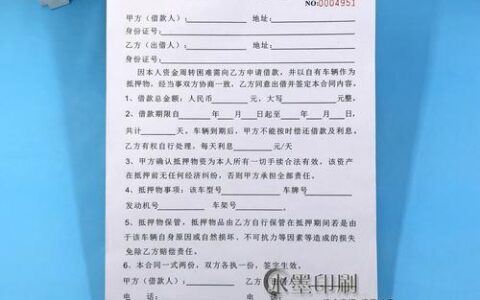 NO:0004951
甲方(借款人):　　　　地址:
身份证号:
乙方(出借人):　　　　地址:
身份证号:
因本人资金周转困难需向乙方申请借款，并以自有车辆作为
抵押物，经当事双方协商一致，乙方同意出借并签定本合同内容。
1、借款总金额：人民币　　　元，大写　　　　元整。
2、借款期限自　　年　月　日起至　　年　月　日，
共计　　天。车辆到期后，甲方不能按时偿还借款及利息。
乙方有权自行处理，每天利息　　　元/天
3、甲方确认抵押物资为本人所有一切手续合法有效。该资产
在抵押前无任何经济纠纷，否则甲方承担全部责任。
4、抵押物事项：该车型号　　　　车牌号
发动机号　　　　车架号　　　　。
5、抵押物保管，抵押物品由乙方自行保管在抵押期间若是由
于该车辆自身原因或自然损坏、不可抗力等因素等造成的损失
免除乙方赔偿责任。
6、本合同一式两份，双方各执一份，签字生效。
甲方(借款人):　　　　乙方
电话:　　　　电话
墨印刷